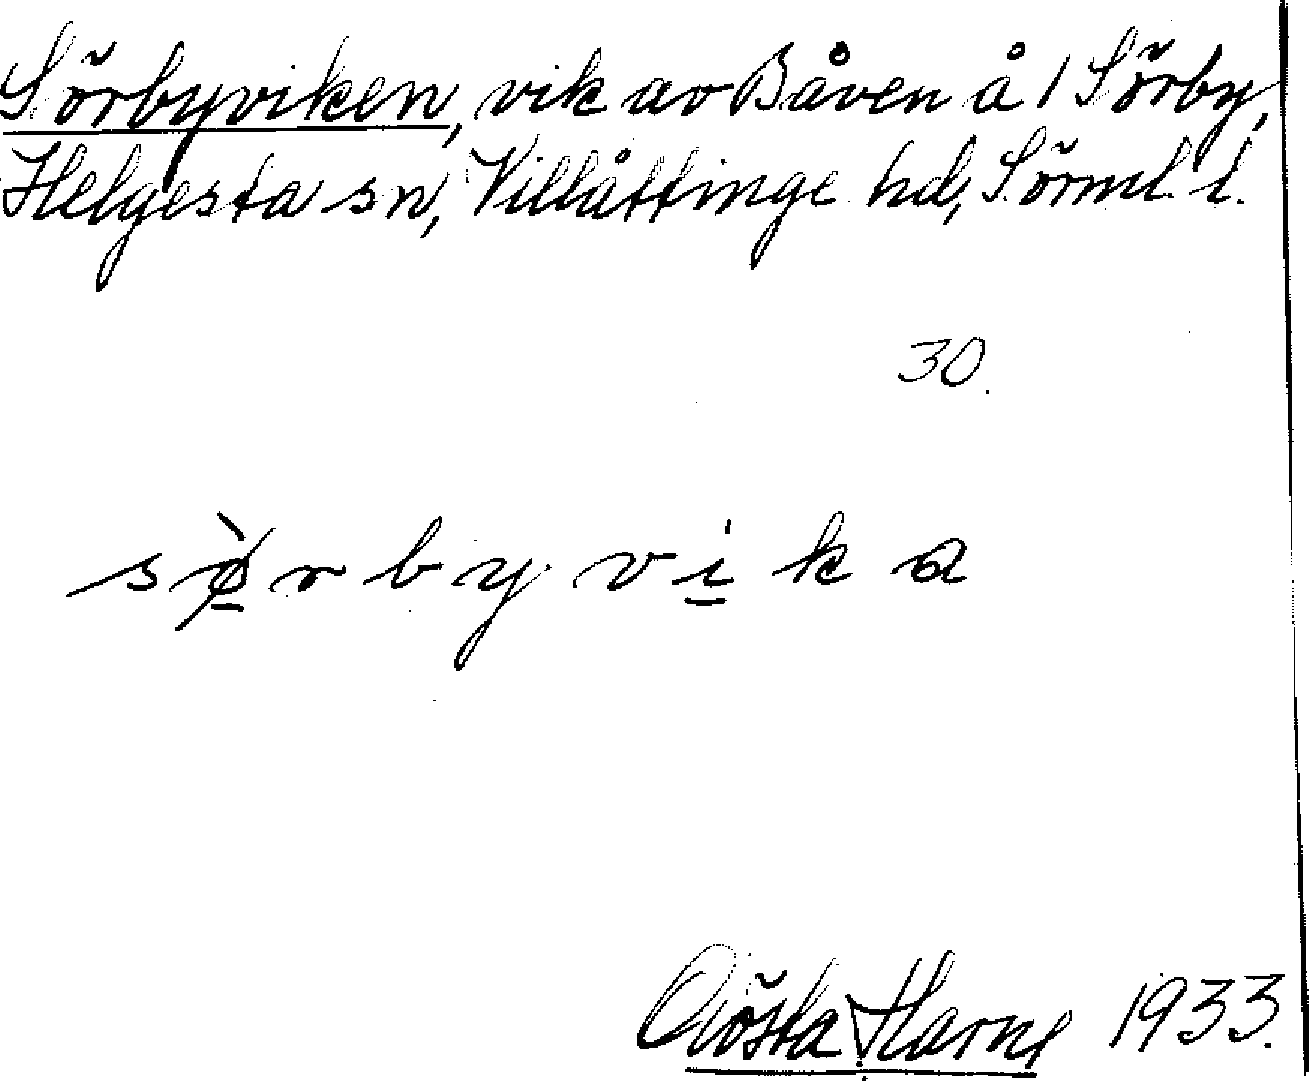 Sörbyviken, vik av Båven å 1 Sörby,
Helgesta sn, Villåttinge hd, Sörml. l.
30.
sø̀rbyvika
Gösta Harne 1933.